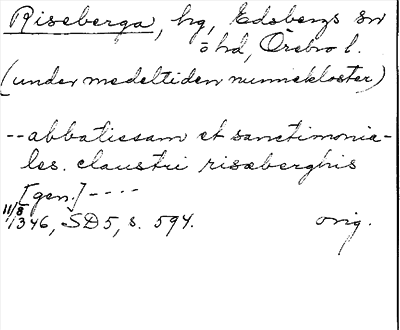 Riseberga, hg, Edsbergs sn
o hd, Örebro l.
(under medeltiden nunnekloster)
-- abbatissam et sanctimonia-
les. claustri risæberghis
[gen.] ----
11/8 1346, SD 5, s. 594. orig.